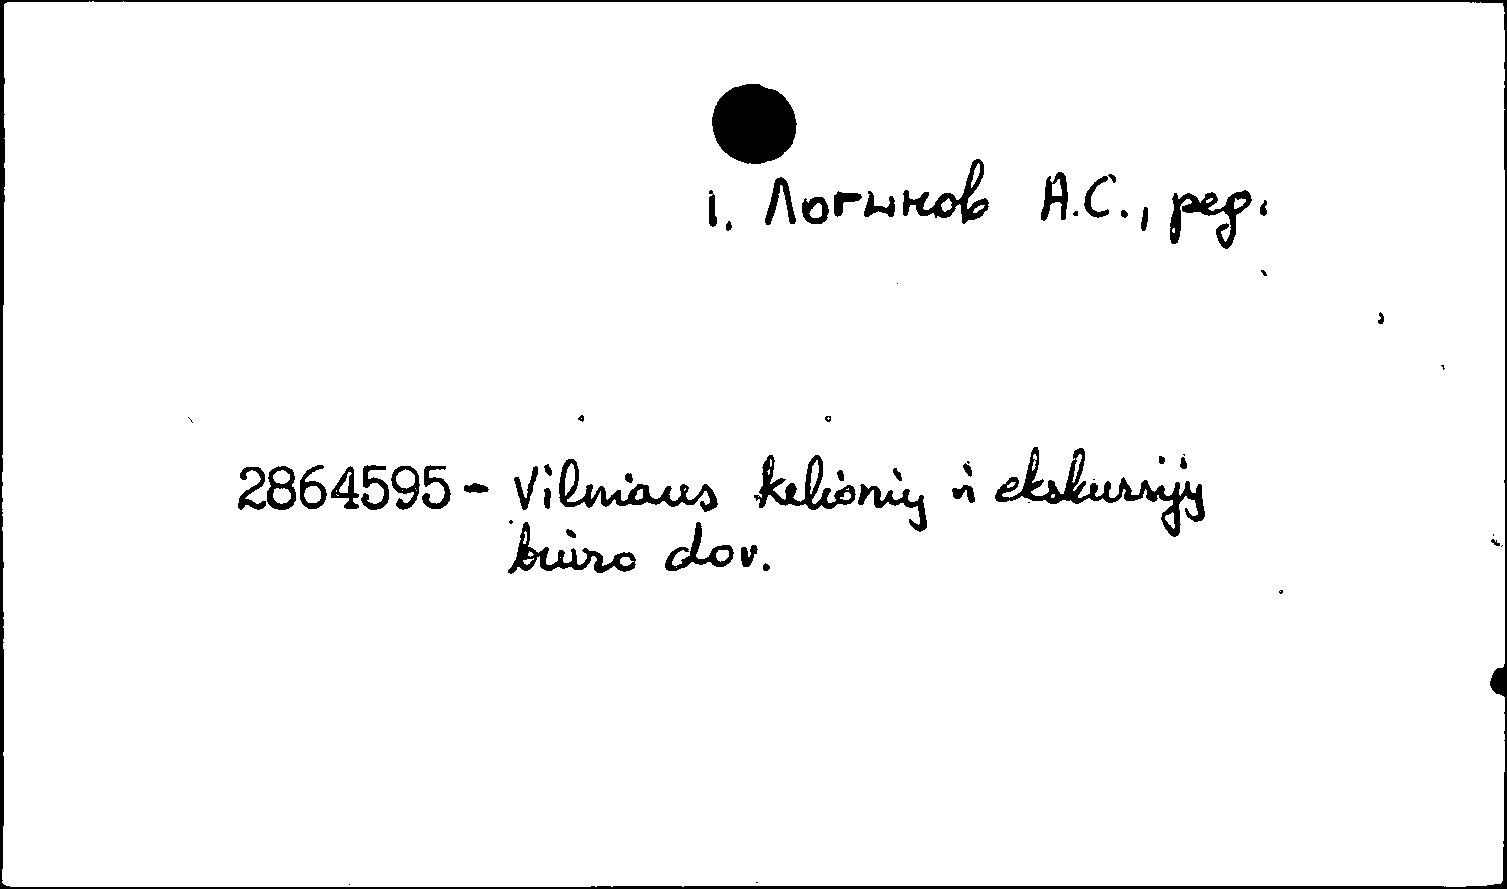 1. Логинов А.С., ред.
2864595 - Vilniaus kelionių ir ekskursijų
biuro dov.